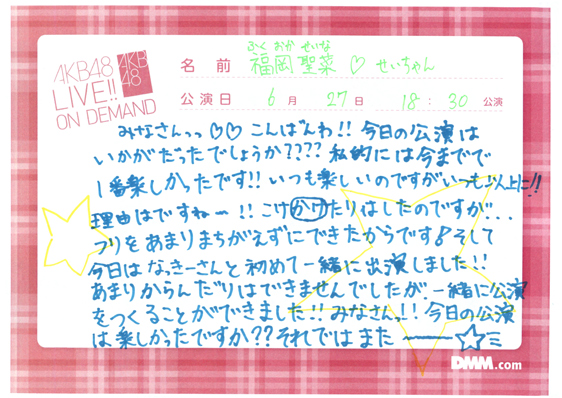 AKB48
LIVE!!
ON DEMAND
AKB
48
ふく おか せいな
名前 福岡 聖菜 ♡ せいちゃん
公演日 6月 27日 18:30 公演
みなさんっっ♡♡ こんばんわ!! 今日の公演は
いかがだったでしょうか???? 私的には今までで
1番楽しかったです!! いつも楽しいのですがいつも以上に!!
理由はですね〜!! こけかけたりはしたのですが...
フリをあまりまちがえずにできたからです♪そして
今日はなっきーさんと初めて一緒に出演しました!!
あまりからんだりはできませんでしたが、一緒に公演
をつくることができました!! みなさん!! 今日の公演
は楽しかったですか?? それではまたーー☆ミ
DMM.com